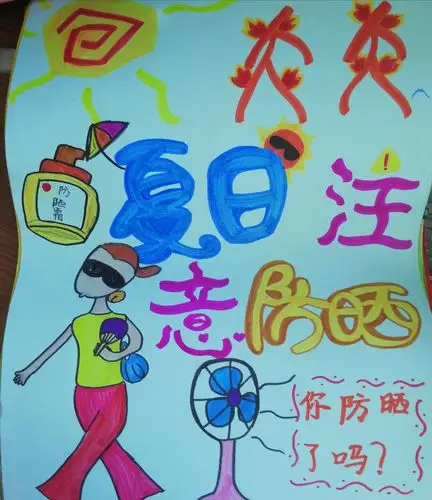 炎炎
夏日注
防
晒
霜
意防晒
你防晒
了吗?